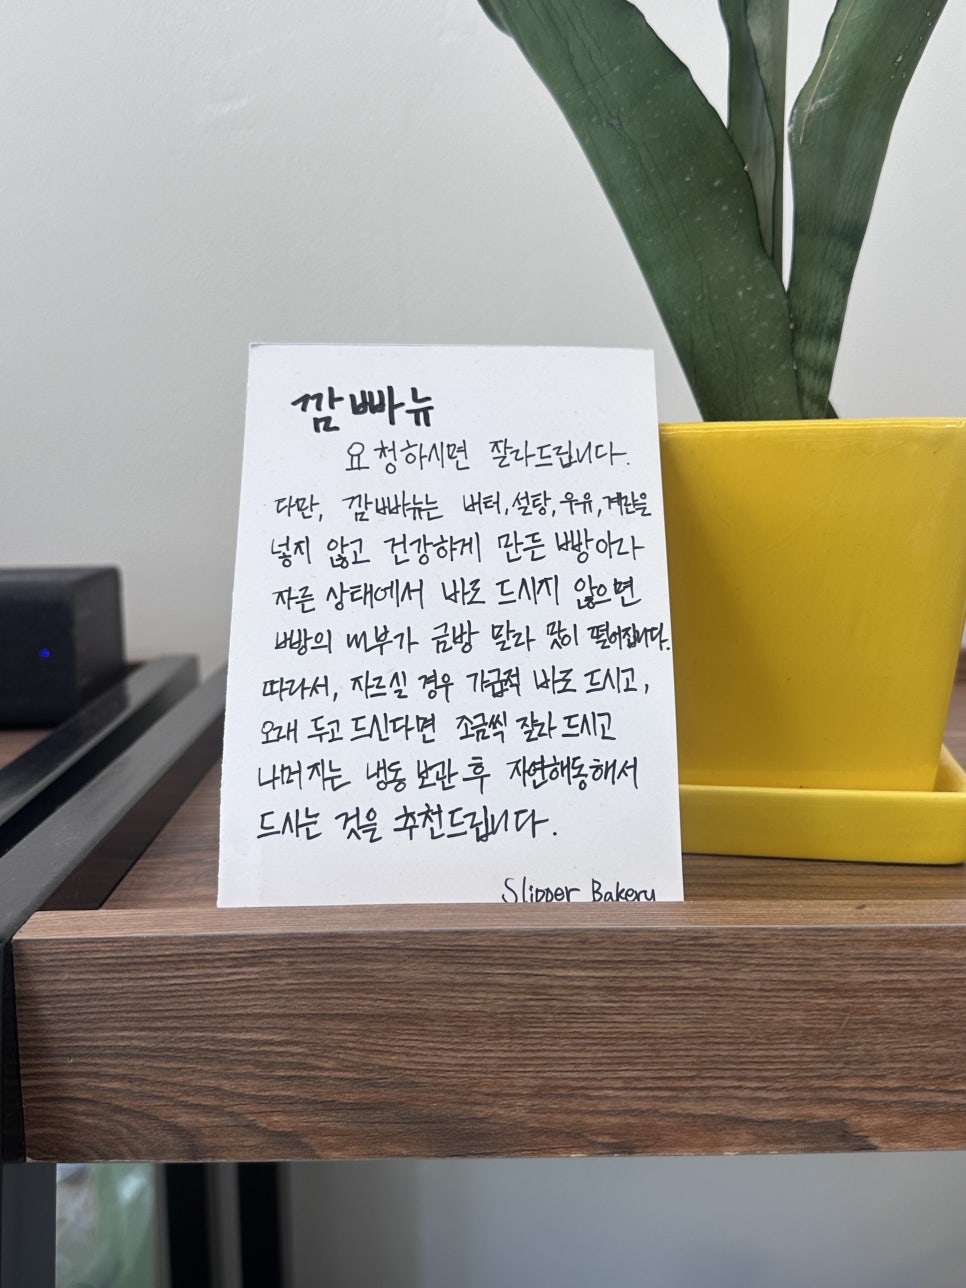 깜빠뉴
요청하시면 잘라드립니다.
다만, 깜빠뉴는 버터, 설탕, 우유, 계란을
넣지 않고 건강하게 만든 빵이라
자른 상태에서 바로 드시지 않으면
빵의 내부가 금방 말라 맛이 떨어집니다.
따라서, 자르실 경우 가급적 바로 드시고,
오래 두고 드신다면 조금씩 잘라 드시고
나머지는 냉동 보관 후 자연해동해서
드시는 것을 추천드립니다.
Slipper Bakery